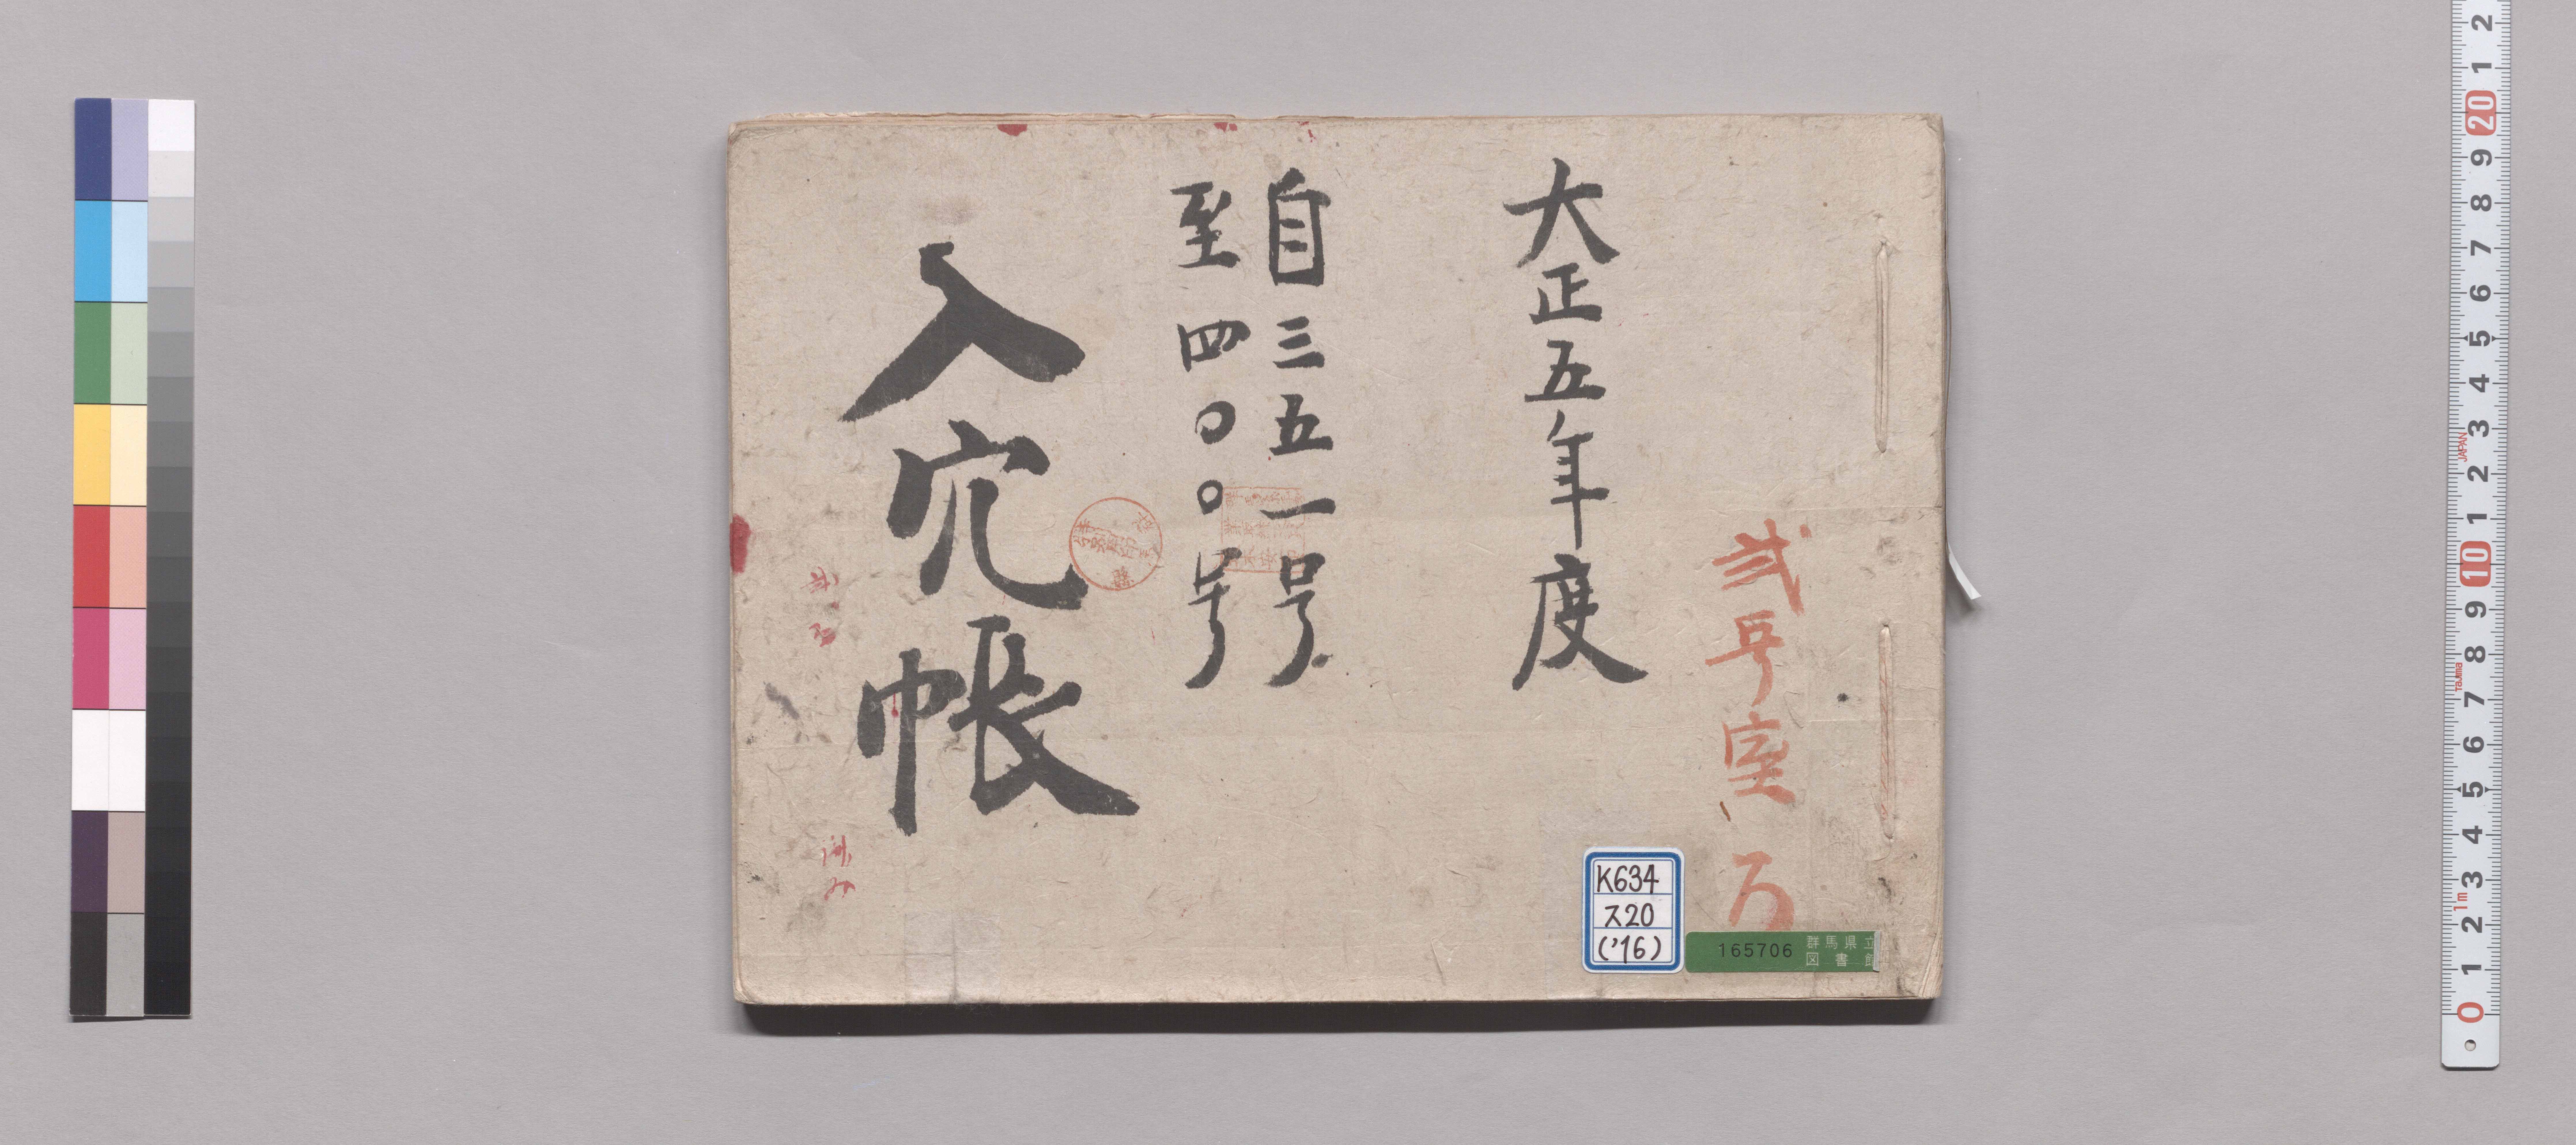 弐号室 ろ
大正五年度
自三五一号
至四〇〇号
入穴帳
K634
ス20
('16)
165706 群馬県立
図書館
2
1
20
9
8
7
6
5
4
3
JAPAN
2
1
10
9
8
Tajima
7
6
5
4
3
1m
2
1
0